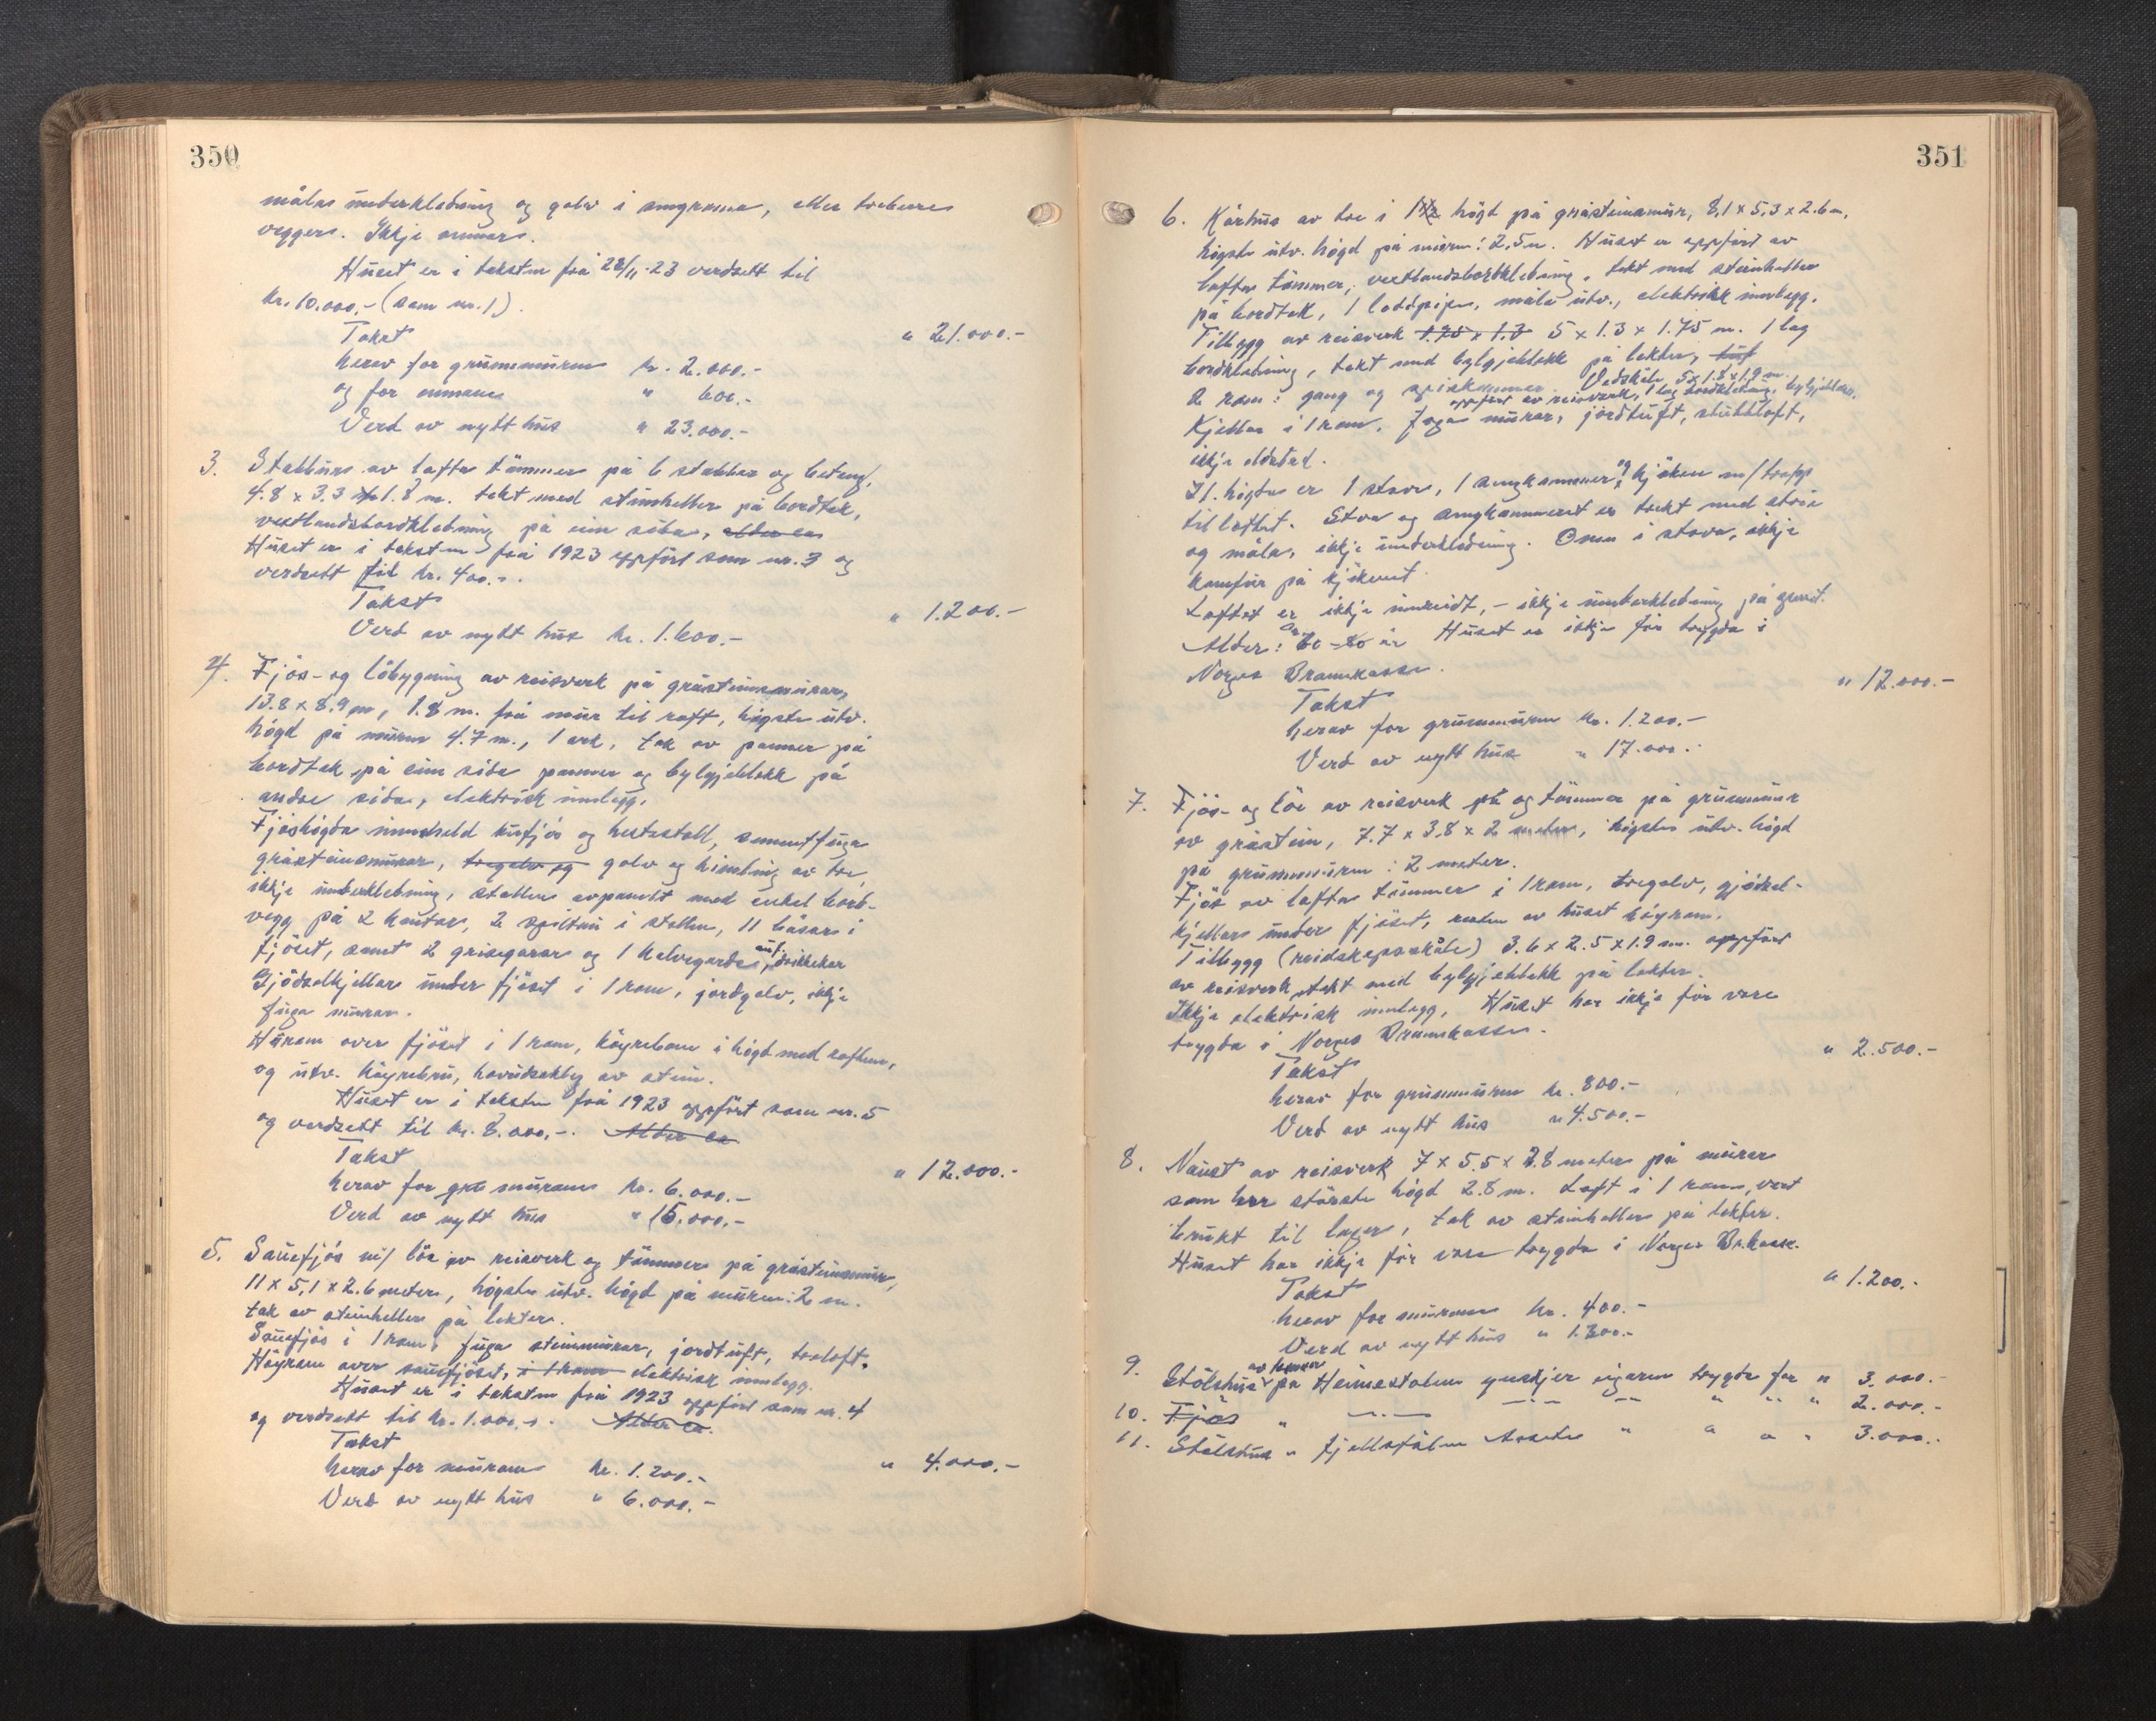 350
måla underkledning og golv i romma, eller trekvre
vegger. Ikkje omnar.
Huset er i taksten frå 28/11-23 verdsett til
kr. 10.000,- (som nr. 1).
Takst " 21.000.-
herav for grunnmuren kr. 2.000.-
og for omnane " 600.-
Verd av nytt hus " 23.000.-
3. Stabburs av lafta tømmer på 6 stabbar og beteng,
4.8 x 3.3 x 1.8 m. tekt med steinheller på bordtak,
vestlandsbordkledning på ein sida, alder ca
Huset er i taksten frå 1923 oppført som nr. 3 og
verdsett til kr. 400.-.
Takst " 1.200.-
Verd av nytt hus kr. 1.600.-
4. Fjøs- og löbygning av reisverk på gråsteinsmurar,
13.8 x 8.9 m, 1.8 m. frå mur til raft, högste utv.
högd på muren 4.7 m., 1 ark, tak av panner på
bordtak på ein sida panner og bylgjeblekk på
andre sida, elektrisk innlegg.
Fjöshögda inneheld kufjös og hestestall, sementfuga
gråsteinsmurar, tregolv og golv og himling av tre,
ikkje underkledning, stallen avpanelt med enkel bord-
vegg på 2 kantar, 2 spiltau i stallen, 11 båsar i
fjöset, samt 2 grisegarar og 1 kalvegarde, aut. drikkekar
Gjödselkjellar under fjöset i 1 rom, jordgolv, ikkje
fuga murar.
Hürom over fjöset i 1 rom, köyrebane i högd med raften,
og utv. köyrebru, hovudsakleg av stein.
Huset er i taksten frå 1923 oppfört som nr. 5
og verdsett til kr. 8.000,-. Alder ca
Takst " 12.000.-
herav for grå murane kr. 6.000.-
Verd av nytt hus " 15.000.-
5. Sauefjös m/ löe av reisverk og tömmer på gråsteinsmur,
11 x 5,1 x 2.6 meter, högste utv. högd på muren: 2 m.
tak av steinheller på lekter.
Sauefjös i 1 rom, fuga steinmurar, jordtuft, treloft.
Höyrom over sauefjöset, i 1 rom elektrisk innlegg.
Huset er i taksten frå 1923 oppfört som nr. 4
og verdsett til kr. 1.000.-. Alder ca.
Takst " 4.000.-
herav for murane kr. 1.200.-
Verd av nytt hus " 6.000.-
351
6. Kårhus av tre i 1 1/2 högd på gråsteinsmur, 8,1 x 5,3 x 2.6 m,
högste utv. högd på muren: 2,5 m. Huset er oppfört av
lafta tömmer, vestlandsbordkledning, tekt med steinheller
på bordtak, 1 loddpipe, måla utv., elektrisk innlegg.
Tillegg av reisverk 1.75 x 1.3 5 x 1.3 x 1.75 m. 1 lag
bordkledning, tekt med bylgjeblekk på lekter,
2 rom: gang og spiskammer. Vedskåle 5 x 1.8 x 1.9 m.
oppfört av reisverk, 1 lag bordkledning, bylgjeblekk.
Kjellar i 1 rom. Fuga murar, jordtuft, stubbloft,
ikkje eldstad.
I 1. högda er 1 stove, 1 sengkammer, og kjöken m/ trapp
til loftet. Stva og sengkammeret er trekt med strie
og måla, ikkje underkledning. Omn i stova, ikkje
komfur på kjökenet.
Loftet er ikkje innreidt, - ikkje underkledning på golvet.
Alder: ca 60-80 år Huset er ikkje för trygda i
Norges Brannkasse.
Takst " 12.000.-
herav for grunnmuren kr. 1.200.-
Verd av nytt hus " 17.000.-
7. Fjös- og löe av reisverk på og tömmer på grunnmur
av gråstein, 7.7 x 3,8 x 2 meter, högste utv. högd
på grunnmuren: 2 meter.
Fjös av lafta tömmer i 1 rom, tregolv, gjödsel-
kjellar under fjöset, resten av huset höyrom.
Tillegg (reidskapsskåle) 3.6 x 2.5 x 1.9 m. oppfört
av reisverk, tekt med bylgjeblekk på lekter.
Ikkje elektrisk innlegg. Huset har ikkje för vore
trygda i Norges Brannkasse.
Takst " 2.500.-
herav for grunnmuren kr. 800.-
Verd av nytt hus " 4.500.-
8. Naust av reisverk 7 x 5.5 x 2.8 meter på murar
som har störste högd 2.8 m. Loft i 1 rom, vert
brukt til lager, tak av steinheller på lekter.
Huset har ikkje för vore trygda i Norges Br.kasse.
Takst " 1.200.-
herav for murane kr. 400.-
Verd av nytt hus " 1.300.-
9. Stölshus på Heimestölen ynskjer eigaren trygda for " 3.000.-
10. Fjös " —..— —..— — " " " 2.000.-
11. Stölshus " fjellstölen " " " " 3.000.-